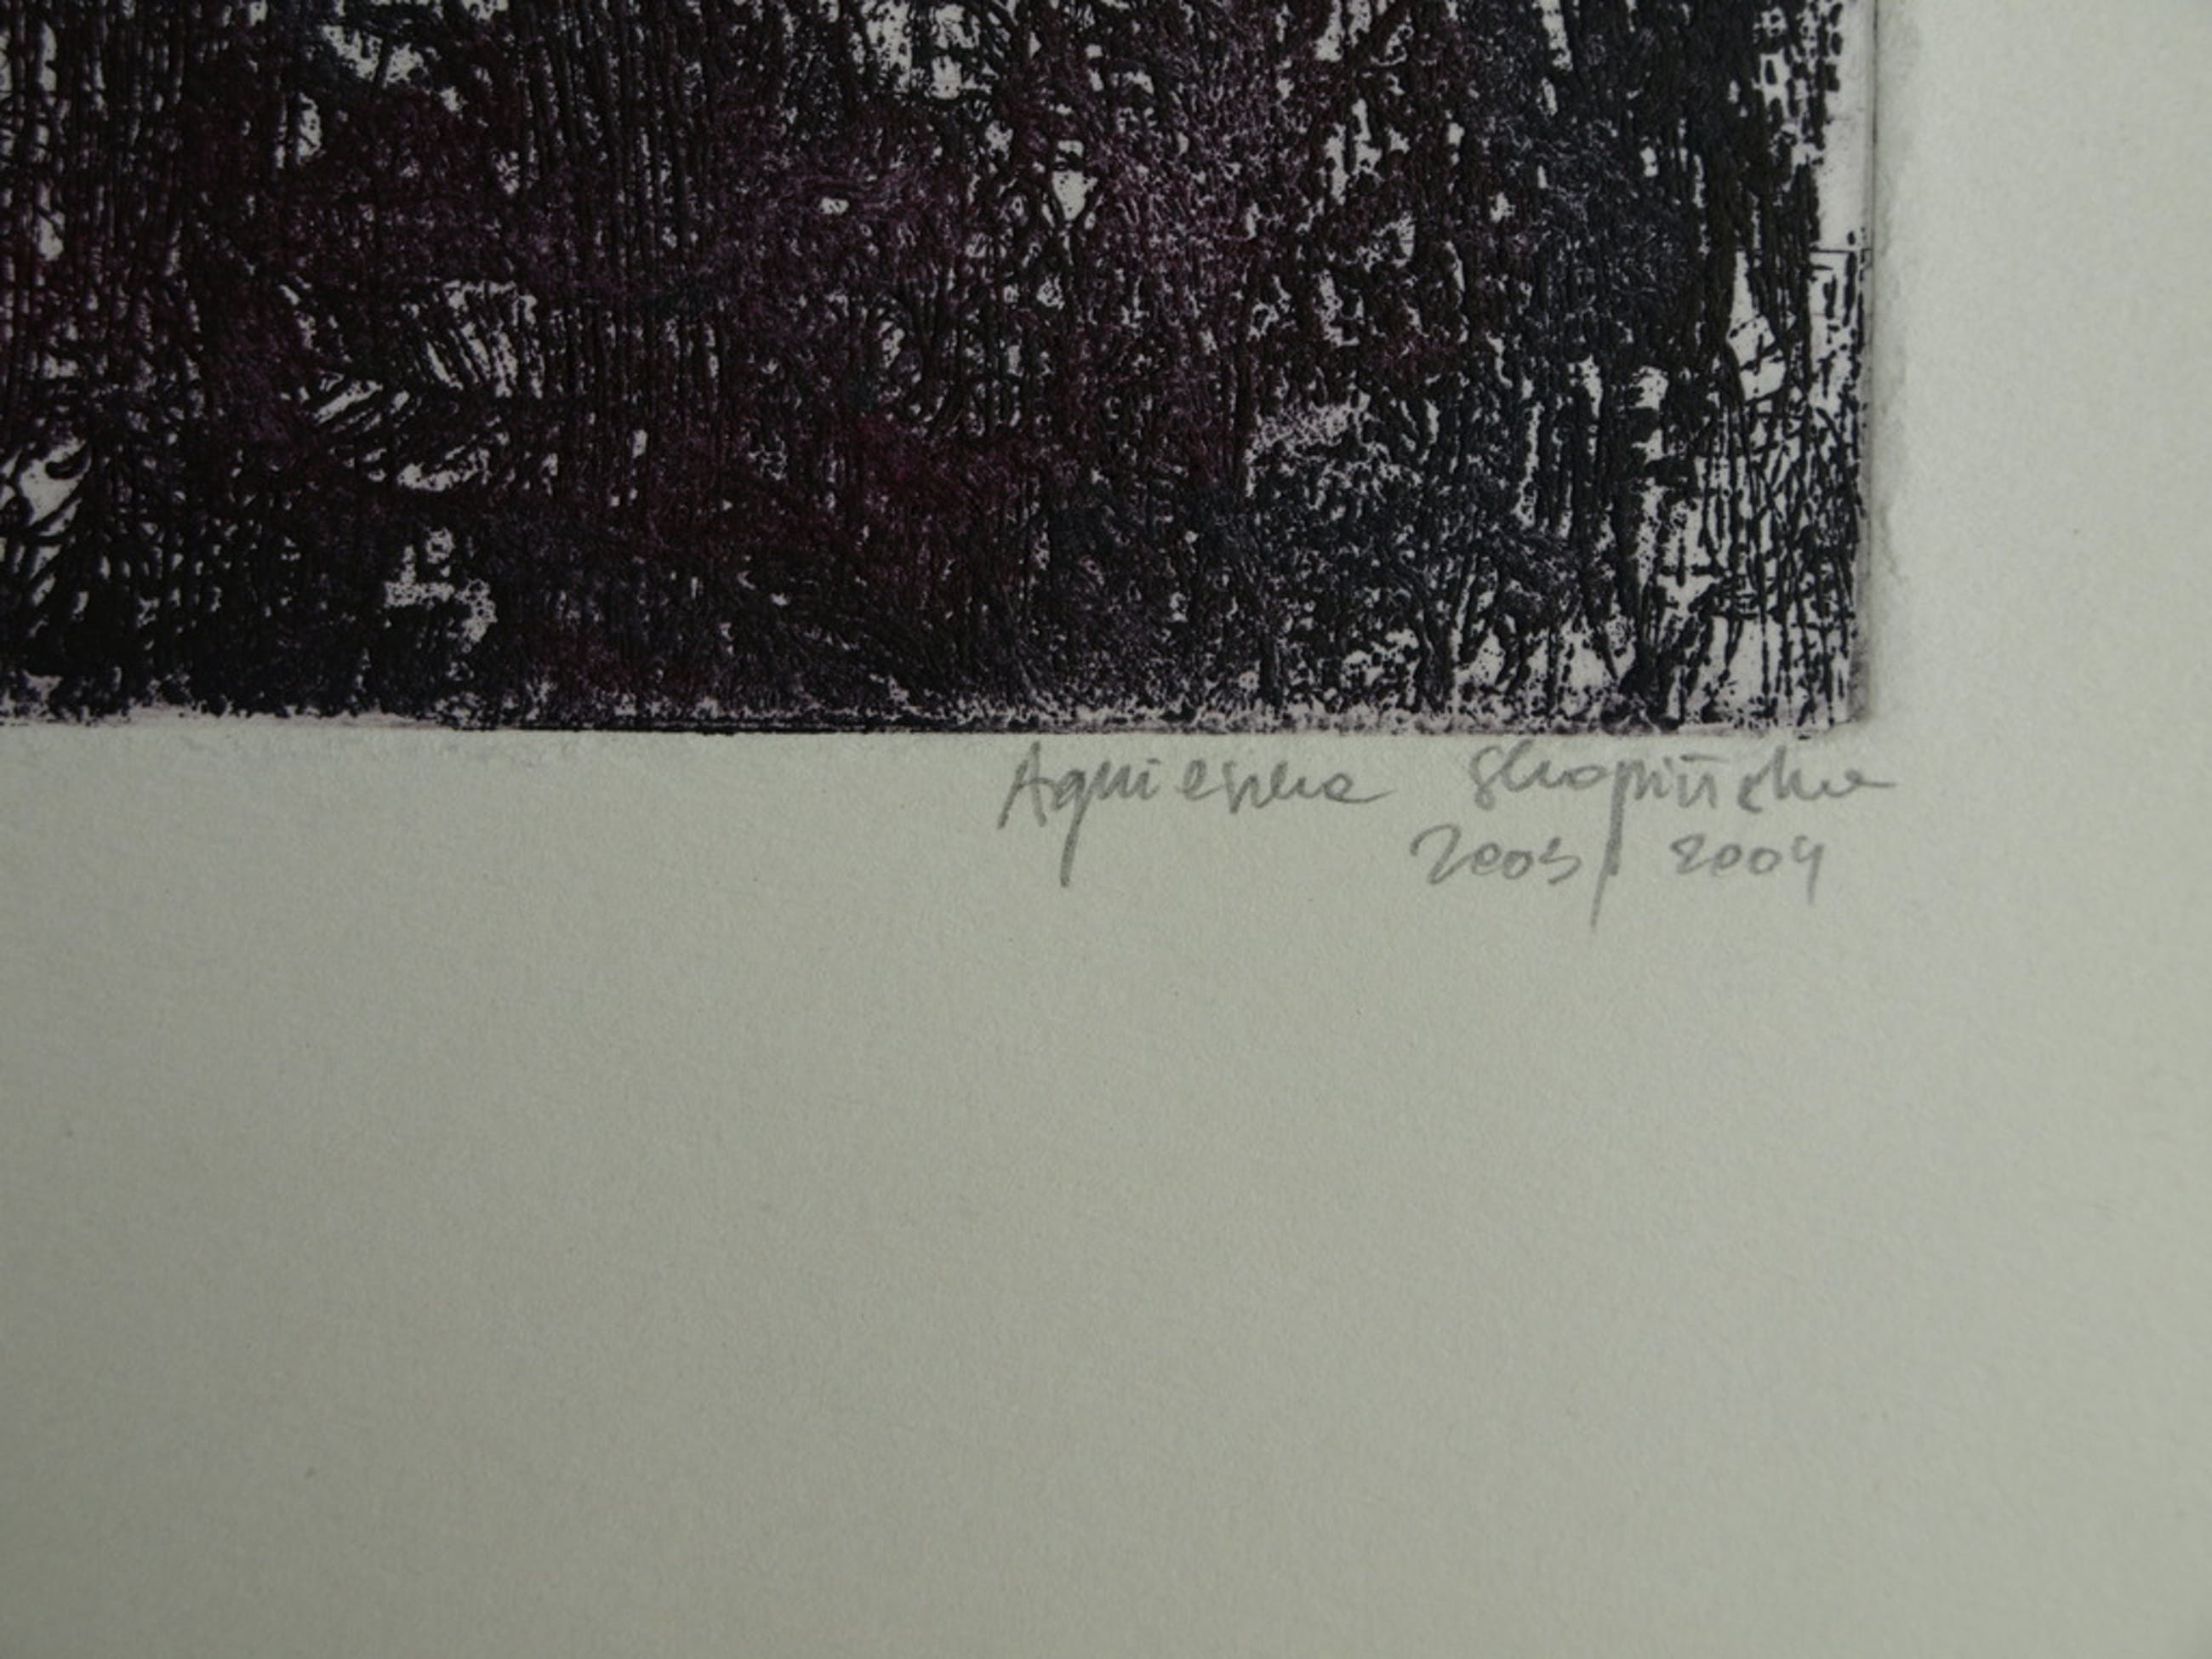 Agnieszka Skopińska
2003/2004